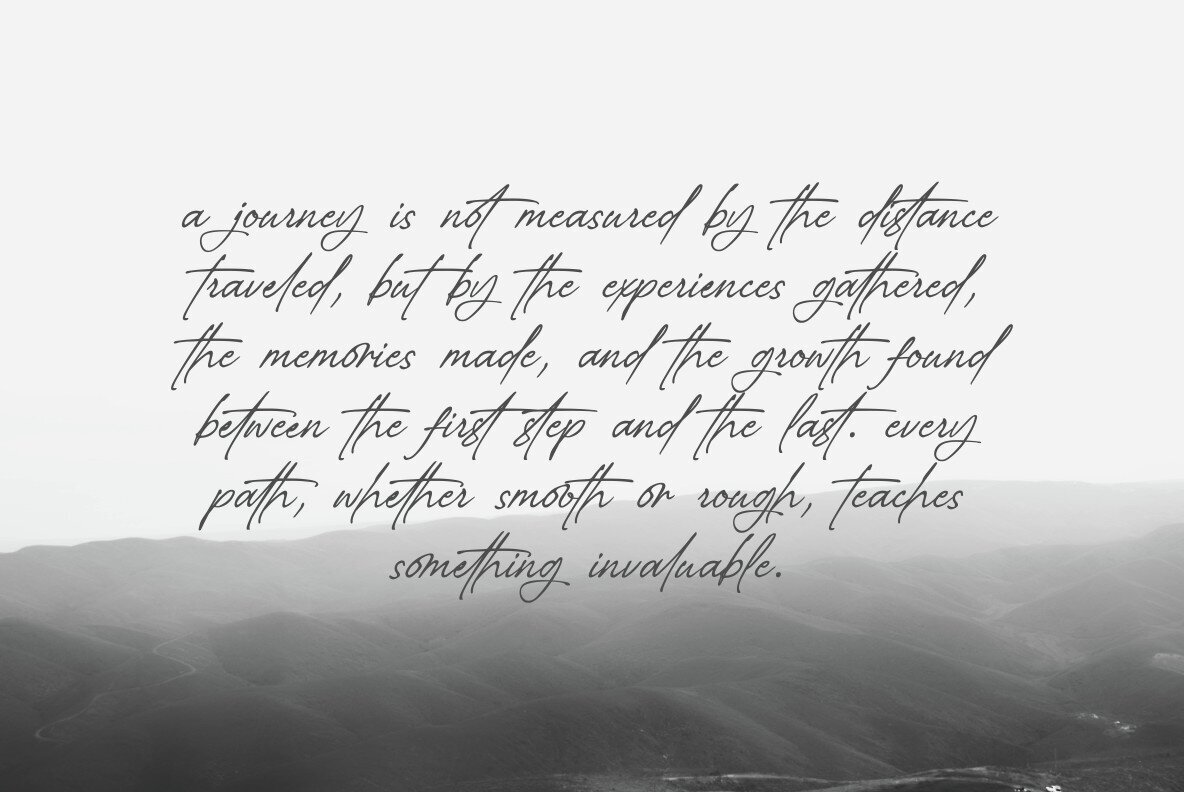 a journey is not measured by the distance
traveled, but by the experiences gathered,
the memories made, and the growth found
between the first step and the last. every
path, whether smooth or rough, teaches
something invaluable.